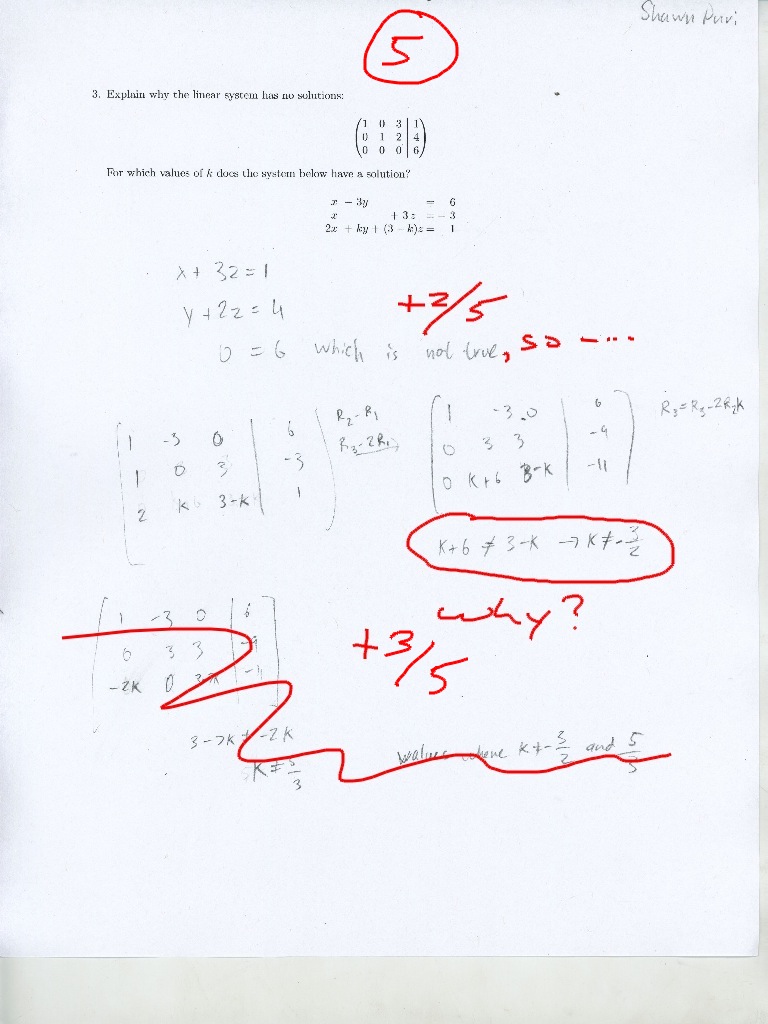 Shawn Puri
5
3. Explain why the linear system has no solutions:
1 0 3 | 1
0 1 2 | 4
0 0 0 | 6
For which values of k does the system below have a solution?
x − 3y = 6
x + 3z = −3
2x + ky + (3 − k)z = 1
x + 3z = 1
y + 2z = 4
+2/5
0 = 6 which is not true, so - ...
1 -3 0 | 6
1 0 3 | -3
2 k 3-k | 1
R2-R1
R3-2R1
1 -3 0 | 6
0 3 3 | -9
0 k+6 3-k | -11
R3=R3-2R2k
k+6 ≠ 3-k → k≠-3/2
why?
+3/5
1 -3 0 | 6
0 3 3 | -9
-2k 0
k≠
values where k≠-3/2 and 5